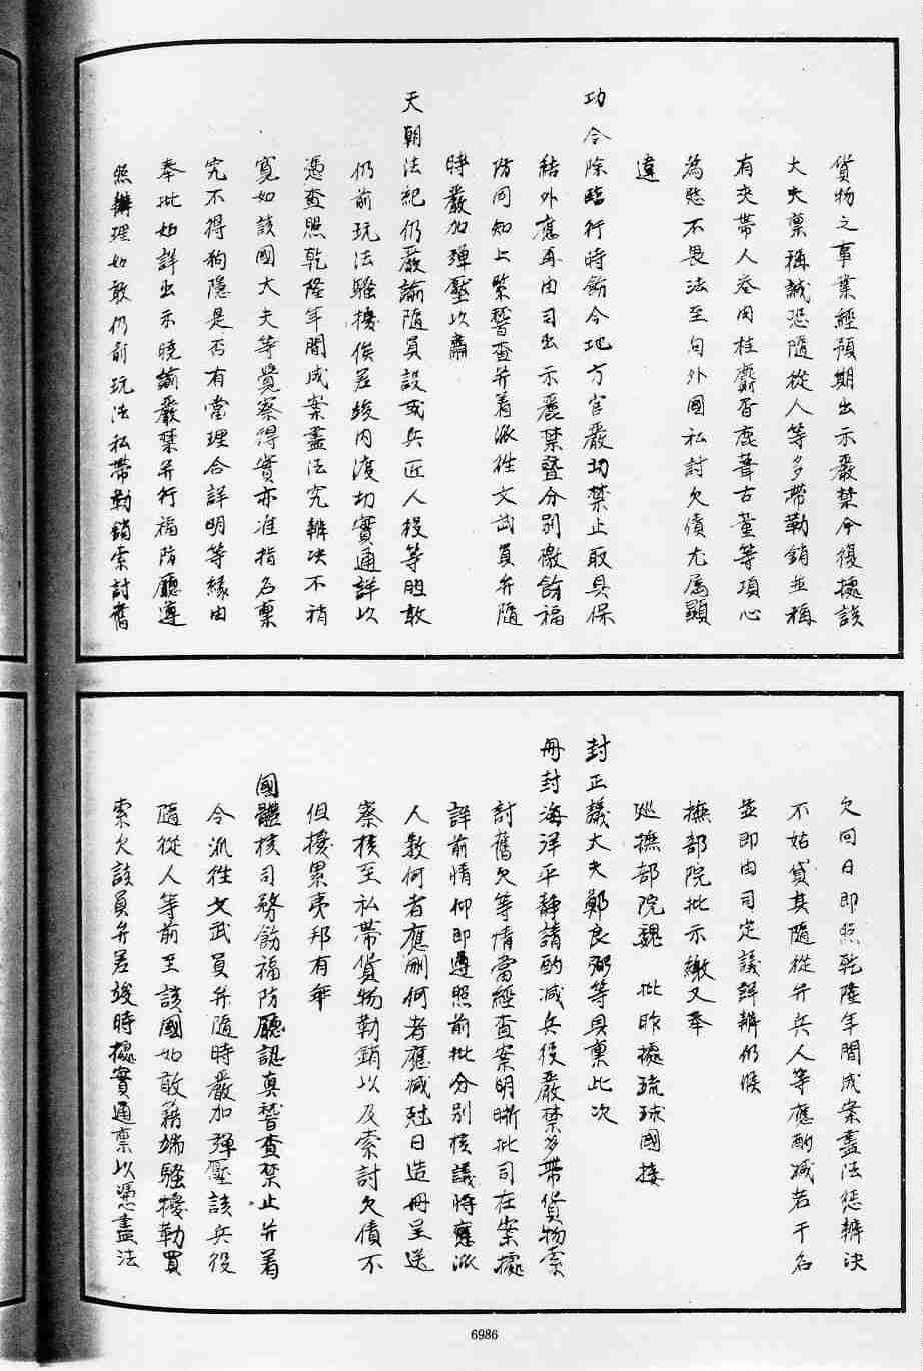 貨物之事業經預期出示嚴禁今復據該
大夫稟稱誠恐隨從人等多帶勒銷並稱
有夾帶人參肉桂麝香鹿茸古董等項心
為愁不畏法至勾外國私討欠債尤屬顯
違
功令除臨行時飭令地方官嚴切禁止取具保
結外應再由司出示嚴禁暨分別檄飭福
防同知上緊督查并着派徃文武員弁隨
時嚴加彈壓以肅
天朝法紀仍嚴諭隨員設或兵匠人役等胆敢
仍前玩法騷擾俟差竣內渡切實通詳以
憑查照乾隆年間成案盡法究辦决不稍
寬如該國大夫等覺察得實亦准指名稟
究不得狥隱是否有當理合詳明等緣由
奉批如詳出示曉諭嚴禁并行福防廳遵
照辦理如敢仍前玩法私帶勒銷索討舊
欠回日即照乾隆年間成案盡法懲辦决
不姑貸其隨從弁兵人等應酌减若干名
並即由司定議詳辦仍候
撫部院批示繳又奉
廵撫部院魏 批昨據琉球國接
封正議大夫鄭良弼等具稟此次
冊封海洋平靜請酌减兵役嚴禁多帶貨物索
討舊欠等情當經查案明晰批司在案據
詳前情仰即遵照前批分别核議將應派
人數何者應刪何者應减尅日造冊呈送
察核至私帶貨物勒銷以及索討欠債不
但擾累夷邦有傘
國體核司務飭福防廳認真督查禁止并着
令派徃文武員弁隨時嚴加彈壓該兵役
隨從人等前至該國如敢藉端騷擾勒買
索欠該員弁差竣時據實通禀以憑盡法
6986